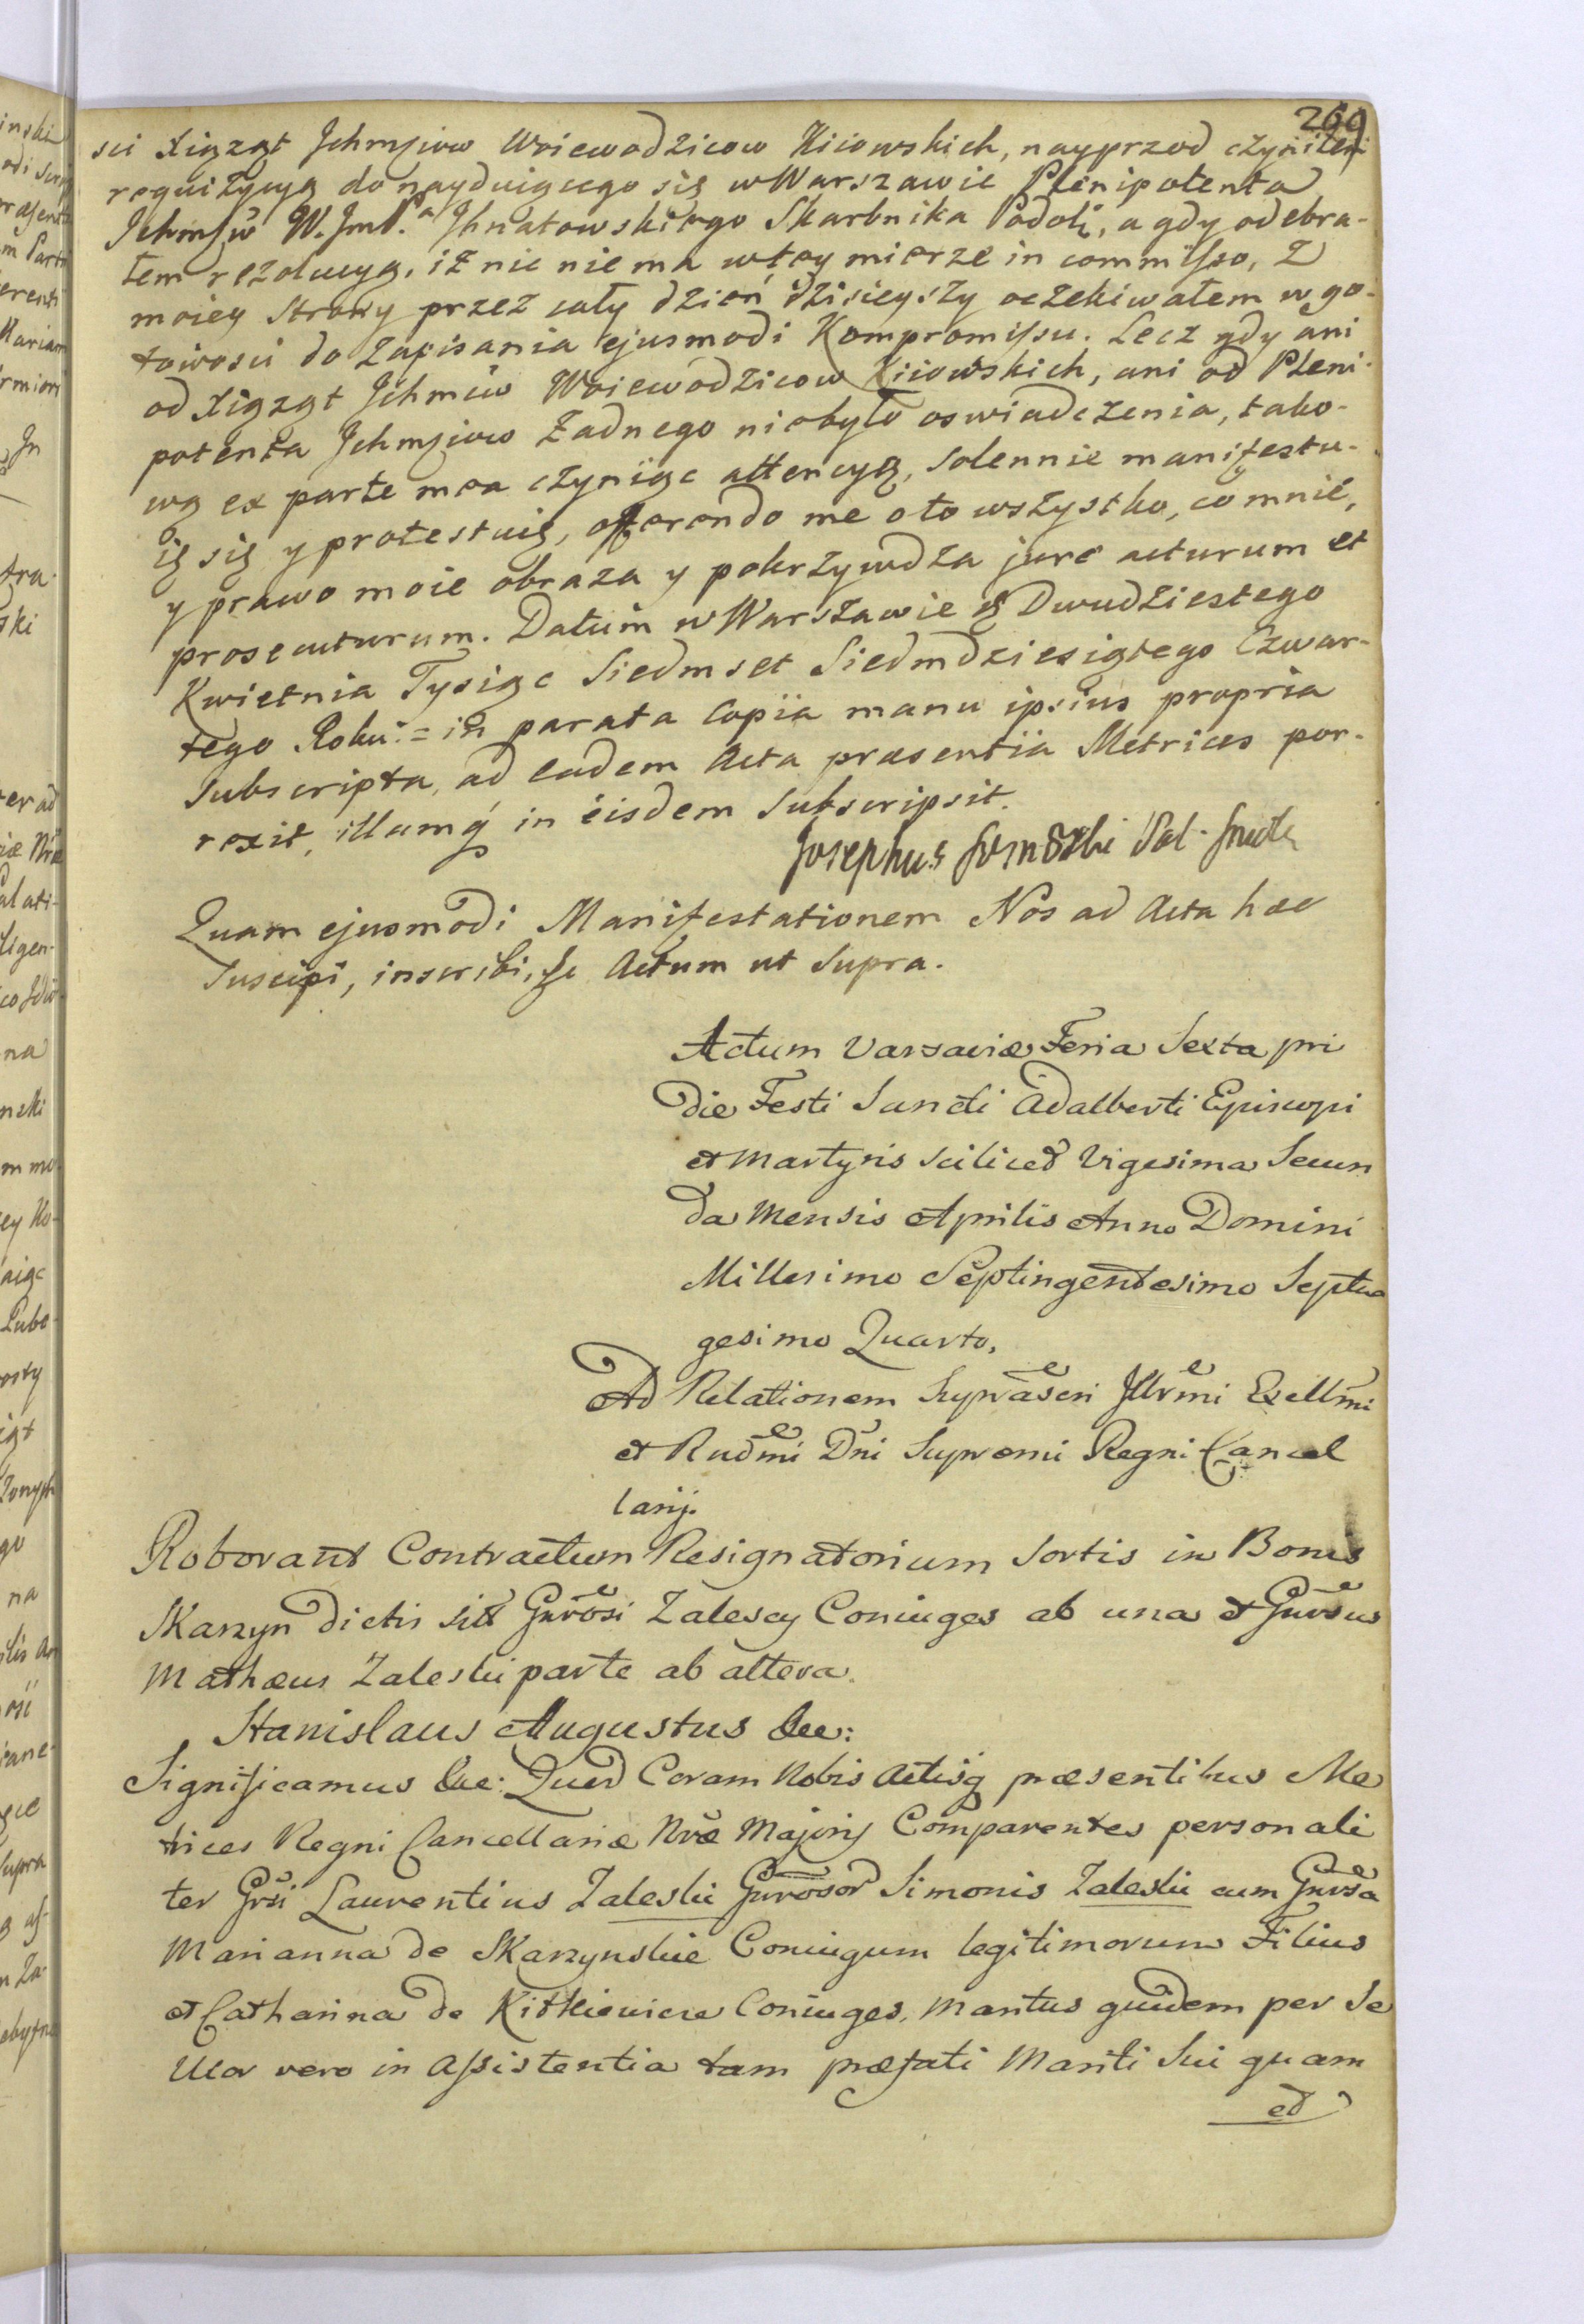 269
sci Xiążąt Jchmściow Woiewodzicow Kiiowskich, nayprzod czyniłem
requizycyą do nayduiącego się w Warszawie Plenipotenta
Jchmśćw W. JmP.ᵃ Jhnatowskiego Skarbnika Podol:, a gdy odebra-
łem rezolucyą, iż nic nie ma w tey mierze in commisso, z
moiey strony przez cały dzień dzisieyszy oczekiwałem w go-
towości do zapisania ejusmodi Kompromissu. Lecz gdy ani
od Xiążąt Jchmćiw Woiewodzicow Kiiowskich, ani od Pleni-
potenta Jchmściow żadnego niebyło oswiadczenia, tako-
wą ex parte mea czyniąc attencyą, solennie manifestu-
ię się y protestuię, offerendo me o to wszystko, co mnie,
y prawo moie obraza y pokrzywdza jure acturum et
prosecuturum. Datum w Warszawie Dwudziestego
Kwietnia Tysiąc Siedmset Siedmdziesiątego Czwar-
tego Roku:= in parata Copia manu ipsius propria
subscripta, ad eadem Acta praesentia Metrices por-
rexit, illamq́ in eisdem subscripsit.
Josephus
Quam ejusmodi Manifestationem Nos ad Acta haec
suscipi, inscribi, Actum ut supra.
Actum Varsaviae Feria Sexta pri
die Festi Sancti Adalberti Episcopi
et Martyris scilicet Vigesima Secun
da Mensis Aprilis Anno Domini
Millesimo Septingentesimo Septua
gesimo Quarto,
Ad Relationem Supraseri Jllrmi Exellmi
et Rndmi Dni Supremi Regni Cancel
larij.
Roborant Contractum Resignatorium Sortis in Bonis
Skarzyn dictis sit Gnrosi Zalescy Coniuges ab una et Gnrsus
Mathaeus Zaleski parte ab altera.
Stanislaus Augustus &c:
Significamus &c: Quod Coram Nobis Actisq́ praesentibus Me
trices Regni Cancellariae Nrae Majoris Comparentes personali
ter Grsi Laurentius Zaleski Gnrosor Simonis Zaleski cum Gnrsa
Marianna de Skarzynskie Coniugum legitimorum Filius
et Catharina de Kitkiewicze Coniuges, Maritus quidem per se
Uxor vero in Assistentia tam praefati Mariti sui quam
et